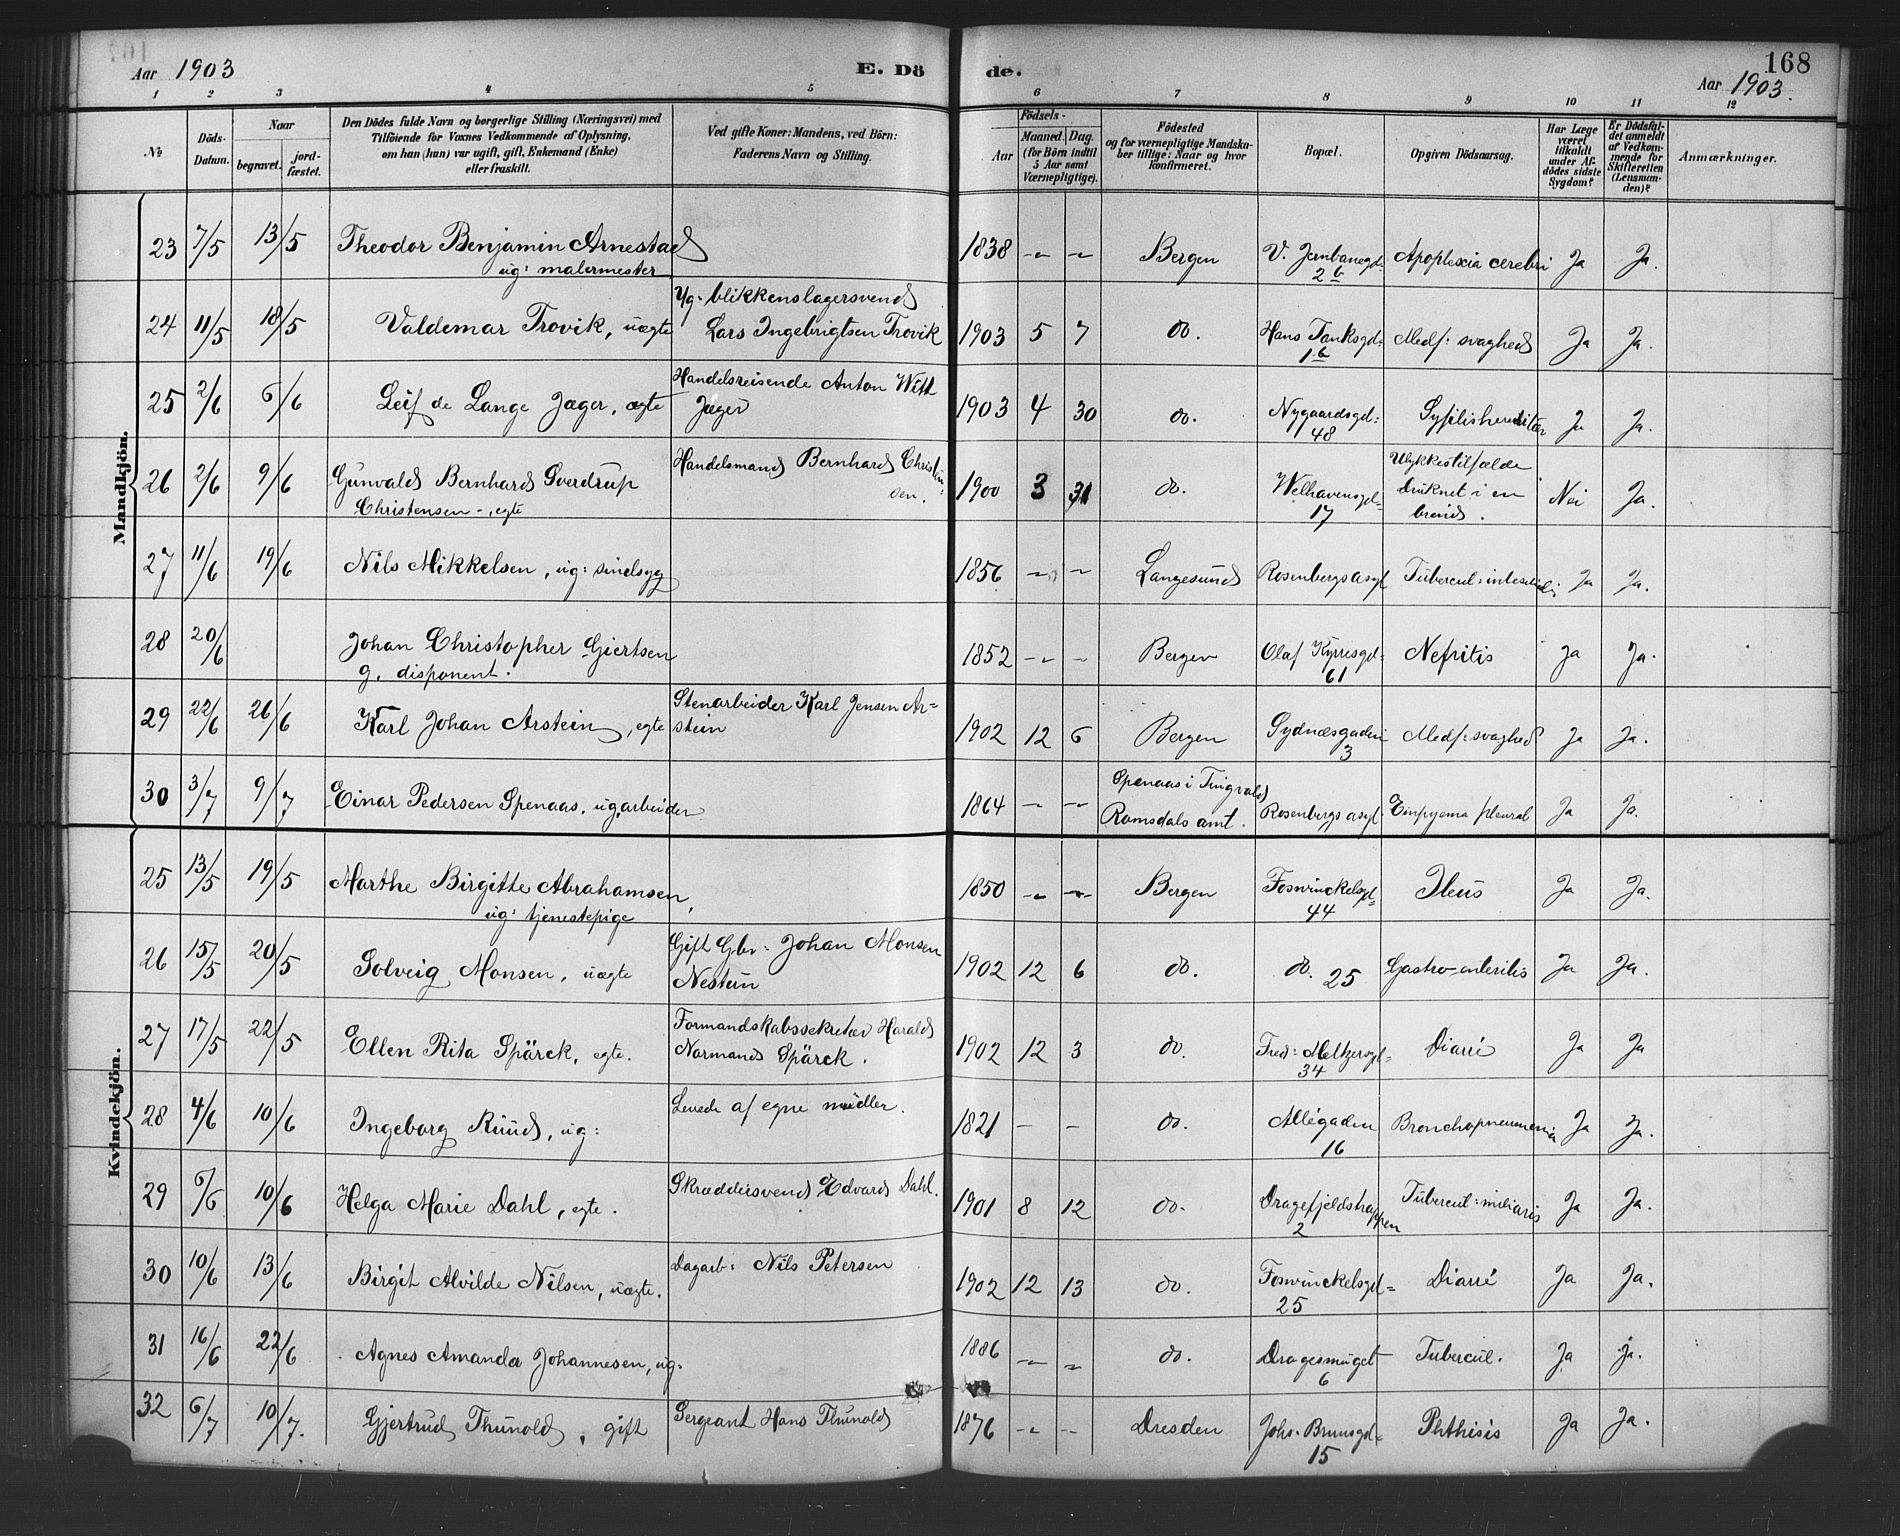 168
Aar 1903 E. Dö de. Aar 1903.
1 2 3 4 5 6 7 8 9 10 11 12
№ Döds-Datum. Naar begravet. jord-fæstet. Den Dödes fulde Navn og borgerlige Stilling (Næringsvei) med Tilföiende for Voxnes Vedkommende af Oplysning, om han (hun) var ugift, gift, Enkemand (Enke) eller fraskilt. Ved gifte Koner: Mandens, ved Börn: Faderens Navn og Stilling. Födsels- Aar Maaned. Dag. (for Börn indtil 5 Aar samt Værnepligtige). Födested og for værnepligtige Mandskaber tillige: Naar og hvor konfirmeret. Bopæl. Opgiven Dödsaarsag. Har Læge været tilkaldt under Afdödes sidste Sygdom? Er Dödsfaldet anmeldt af Vedkommende for Skifteretten (Lensmanden)? Anmærkninger.
Mandkjön.
23 7/5 13/5 Theodor Benjamin Arnestad ug: malermester 1838 -- -- Bergen V. Jernbanegd: 26 Apoplexia cerebri Ja Ja.
24 11/5 18/5 Valdemar Trovik, uægte Ug: blikkenslagersvend Lars Ingebrigtsen Trovik 1903 5 7 do. Hans Tanksgd- 16 Medf: svaghed Ja Ja.
25 2/6 6/6 Leif de Lange Jæger, ægte Handelsreisende Anton Witt Jæger 1903 4 30 do. Nygaardsgd: 48 Syfilis hereditær Ja Ja.
26 2/6 9/6 Gunvald Bernhard Sverdrup Christensen -, egte Handelsmand Bernhard Christensen. 1900 3 31 do. Welhavensgd= 17 Ulykkestilfælde Druknet i en brønd. Nei Ja.
27 11/6 19/6 Nils Mikkelsen, ug: sindsyg 1856 -- -- Langesund Rosenbergs asyl Tubercul: intestinal: Ja Ja.
28 20/6 Johan Christopher Giertsen g. disponent. 1852 -- - Bergen Olaf Kyrresgd- 61 Nefritis Ja Ja.
29 22/6 26/6 Karl Johan Arstein, egte Stenarbeider Karl Jensen Ar=stein 1902 12 6 Bergen Sydnæsgaden 3 Medf: svaghed Ja Ja.
30 3/7 9/7 Einar Pedersen Spenaas, ug. arbeider 1864 -- -- Spenaas i Tingvold Romsdals amt. Rosenbergs asyl. Empyema pleural Ja Ja.
Kvindekjön.
25 13/5 19/5 Marthe Birgitte Abrahamsen, ug: tjenestepige 1850 -- -- Bergen Foswinckelsgd= 44 Ileus Ja Ja.
26 15/5 20/5 Solveig Monsen, uægte Gift Gbr: Johan Monsen Nestun 1902 12 6 do. do. 25 Gastro-enteritis Ja Ja.
27 17/5 22/5 Ellen Rita Spärck, egte. Formandskabssekretær Harald Normand Spärck. 1902 12 3 do. Fred: Meltzersgd= 34 Diarré Ja Ja
28 4/6 10/6 Ingeborg Ruud, ug: Levede af egne midler. 1821 - - do. Allégaden 16 Bronchopneumonia Ja Ja.
29 5/6 10/6 Helga Marie Dahl, egte. Skræddersvend Edvard Dahl. 1901 8 12 do. Dragefjeldstrappen 2 Tubercul: miliaris Ja Ja.
30 10/6 13/6 Birgit Alvilde Nilsen, uægte. Dagarb: Nils Petersen 1902 12 13 do. Foswinckelsgd= 25 Diarré Ja Ja.
31 16/6 22/6 Agnes Amanda Johannesen, ug. 1886 -- -- do. Dragesmuget 6 Tubercul. Ja Ja.
32 6/7 10/7. Gjertrud Thunold, gift Sergeant Hans Thunold 1876 -- -- Dresden Johs. Brunsgd= 15 Phthisis Ja Ja.